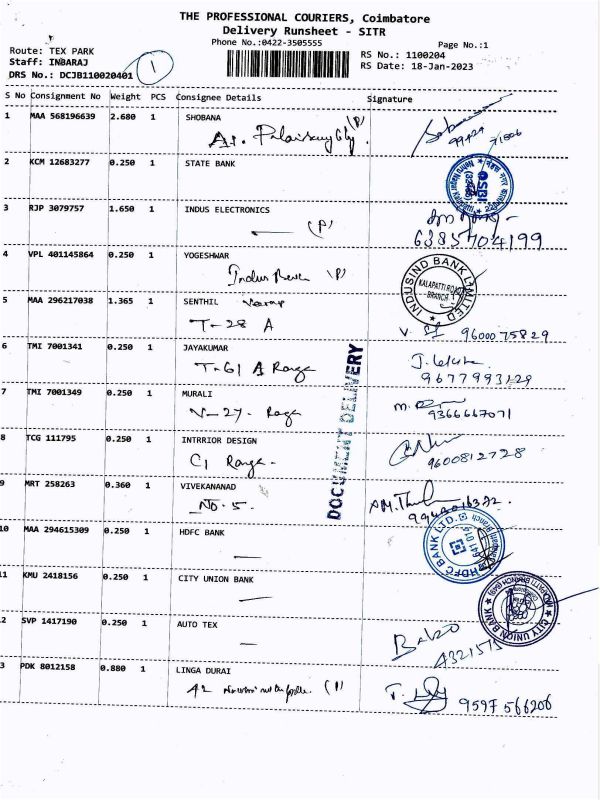 THE PROFESSIONAL COURIERS, Coimbatore
Delivery Runsheet - SITR
Phone No.:0422-3505555
Page No.:1
Route: TEX PARK
RS No.: 1100204
Staff: INBARAJ
RS Date: 18-Jan-2023
DRS No.: DCJB110020401
1
S No Consignment No Weight PCS Consignee Details Signature
1 MAA 568196639 2.680 1 SHOBANA
(P)
2 KCM 12683277 0.250 1 STATE BANK
SBI
3 RJP 3079757 1.650 1 INDUS ELECTRONICS
(P)
6385704199
4 VPL 401145864 0.250 1 YOGESHWAR
Indus (P)
INDUSIND BANK LIMITED
KALAPATTI ROAD
BRANCH
5 MAA 296217038 1.365 1 SENTHIL
T-28 A
9600075829
6 TMI 7001341 0.250 1 JAYAKUMAR
T-61 A Range
9677993129
7 TMI 7001349 0.250 1 MURALI
9366667071
8 TCG 111795 0.250 1 INTRRIOR DESIGN
C1 Range
9600812728
DOCUMENT DELIVERY
9 MRT 258263 0.360 1 VIVEKANANAD
NO.5.
10 MAA 294615309 0.250 1 HDFC BANK
HDFC BANK LTD.
11 KMU 2418156 0.250 1 CITY UNION BANK
CITY UNION BANK
2 SVP 1417190 0.250 1 AUTO TEX
3 PDK 8012158 0.880 1 LINGA DURAI
(P)
9597566206